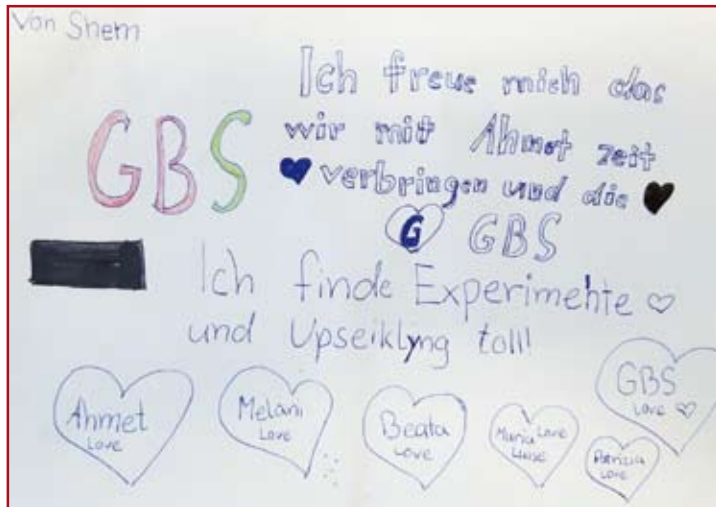 Von Shem
Ich freue mich das
GBS
wir mit Ahmet zeit
verbringen und die
G GBS
Ich finde Experimehte
und Upseiklyng toll!
Ahmet
Love
Melani
Love
Beata
Love
Maria Love
Luise
GBS
Love
Patrizia
Love